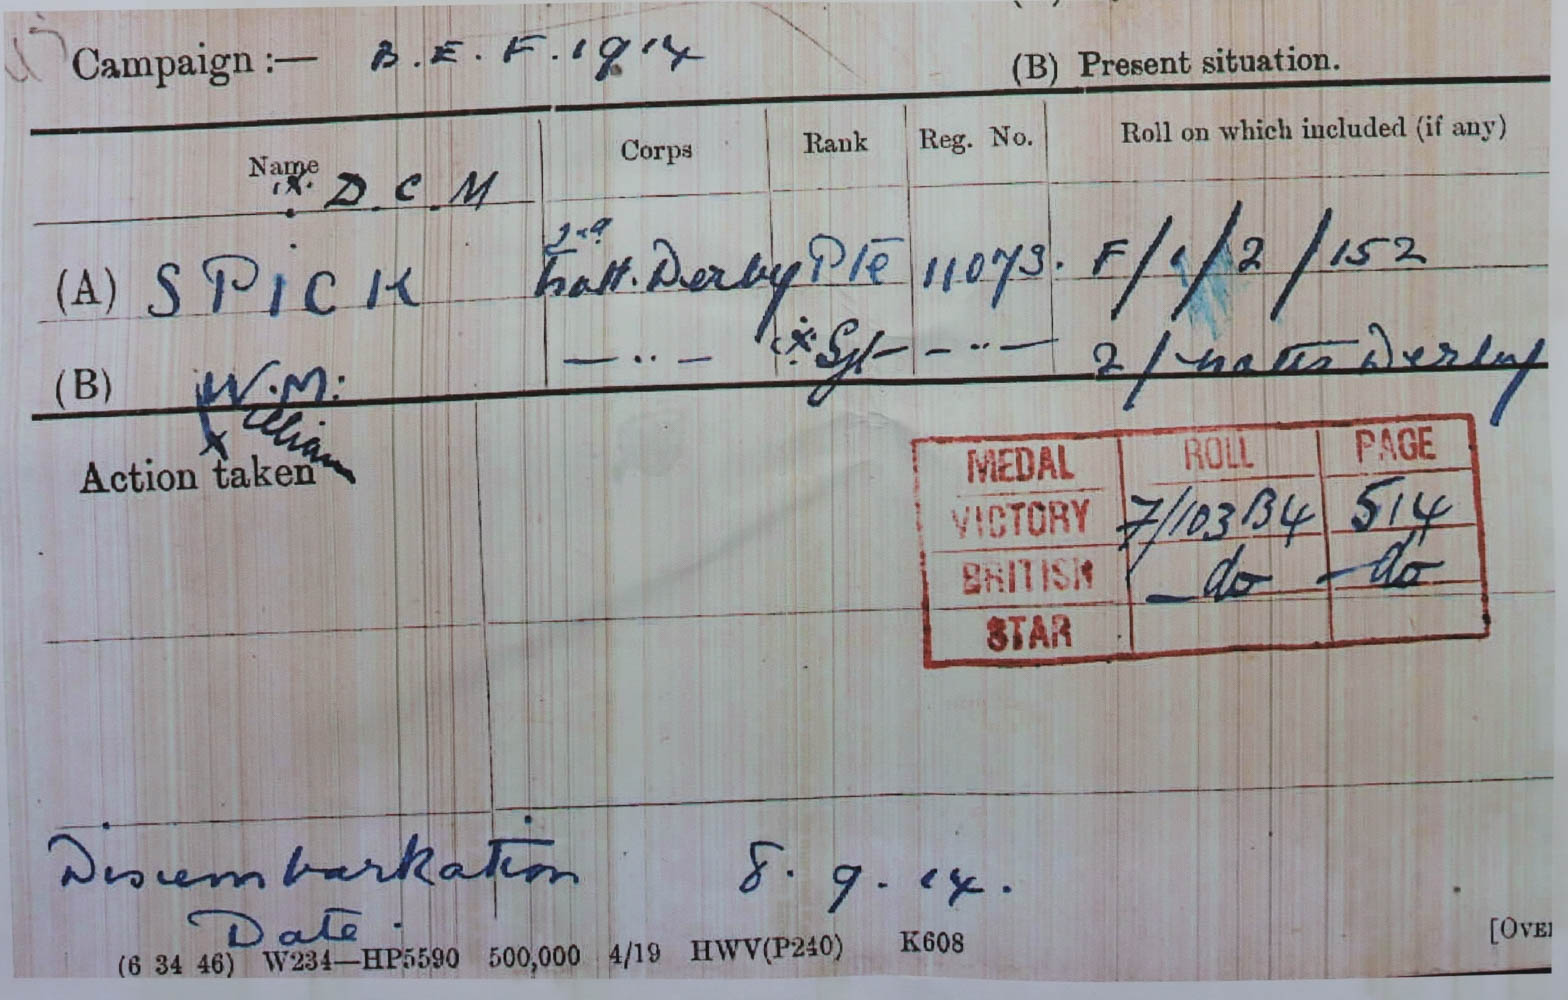 Campaign :— B.E.F. 1914
(B) Present situation.
Name Corps Rank Reg. No. Roll on which included (if any)
x. D.C.M
2nd
(A) SPICK Nott. Derby Pte 11073. F/1/2/152
(B) W.M: — " — x Sgt — " — 2/ Notts Derby
William
x
Action taken
MEDAL ROLL PAGE
VICTORY 7/103B4 514
BRITISH — do — do
STAR
Disembarkation 8. 9. 14.
Date.
[OVE
(6 34 46) W234—HP5590 500,000 4/19 HWV(P240) K608